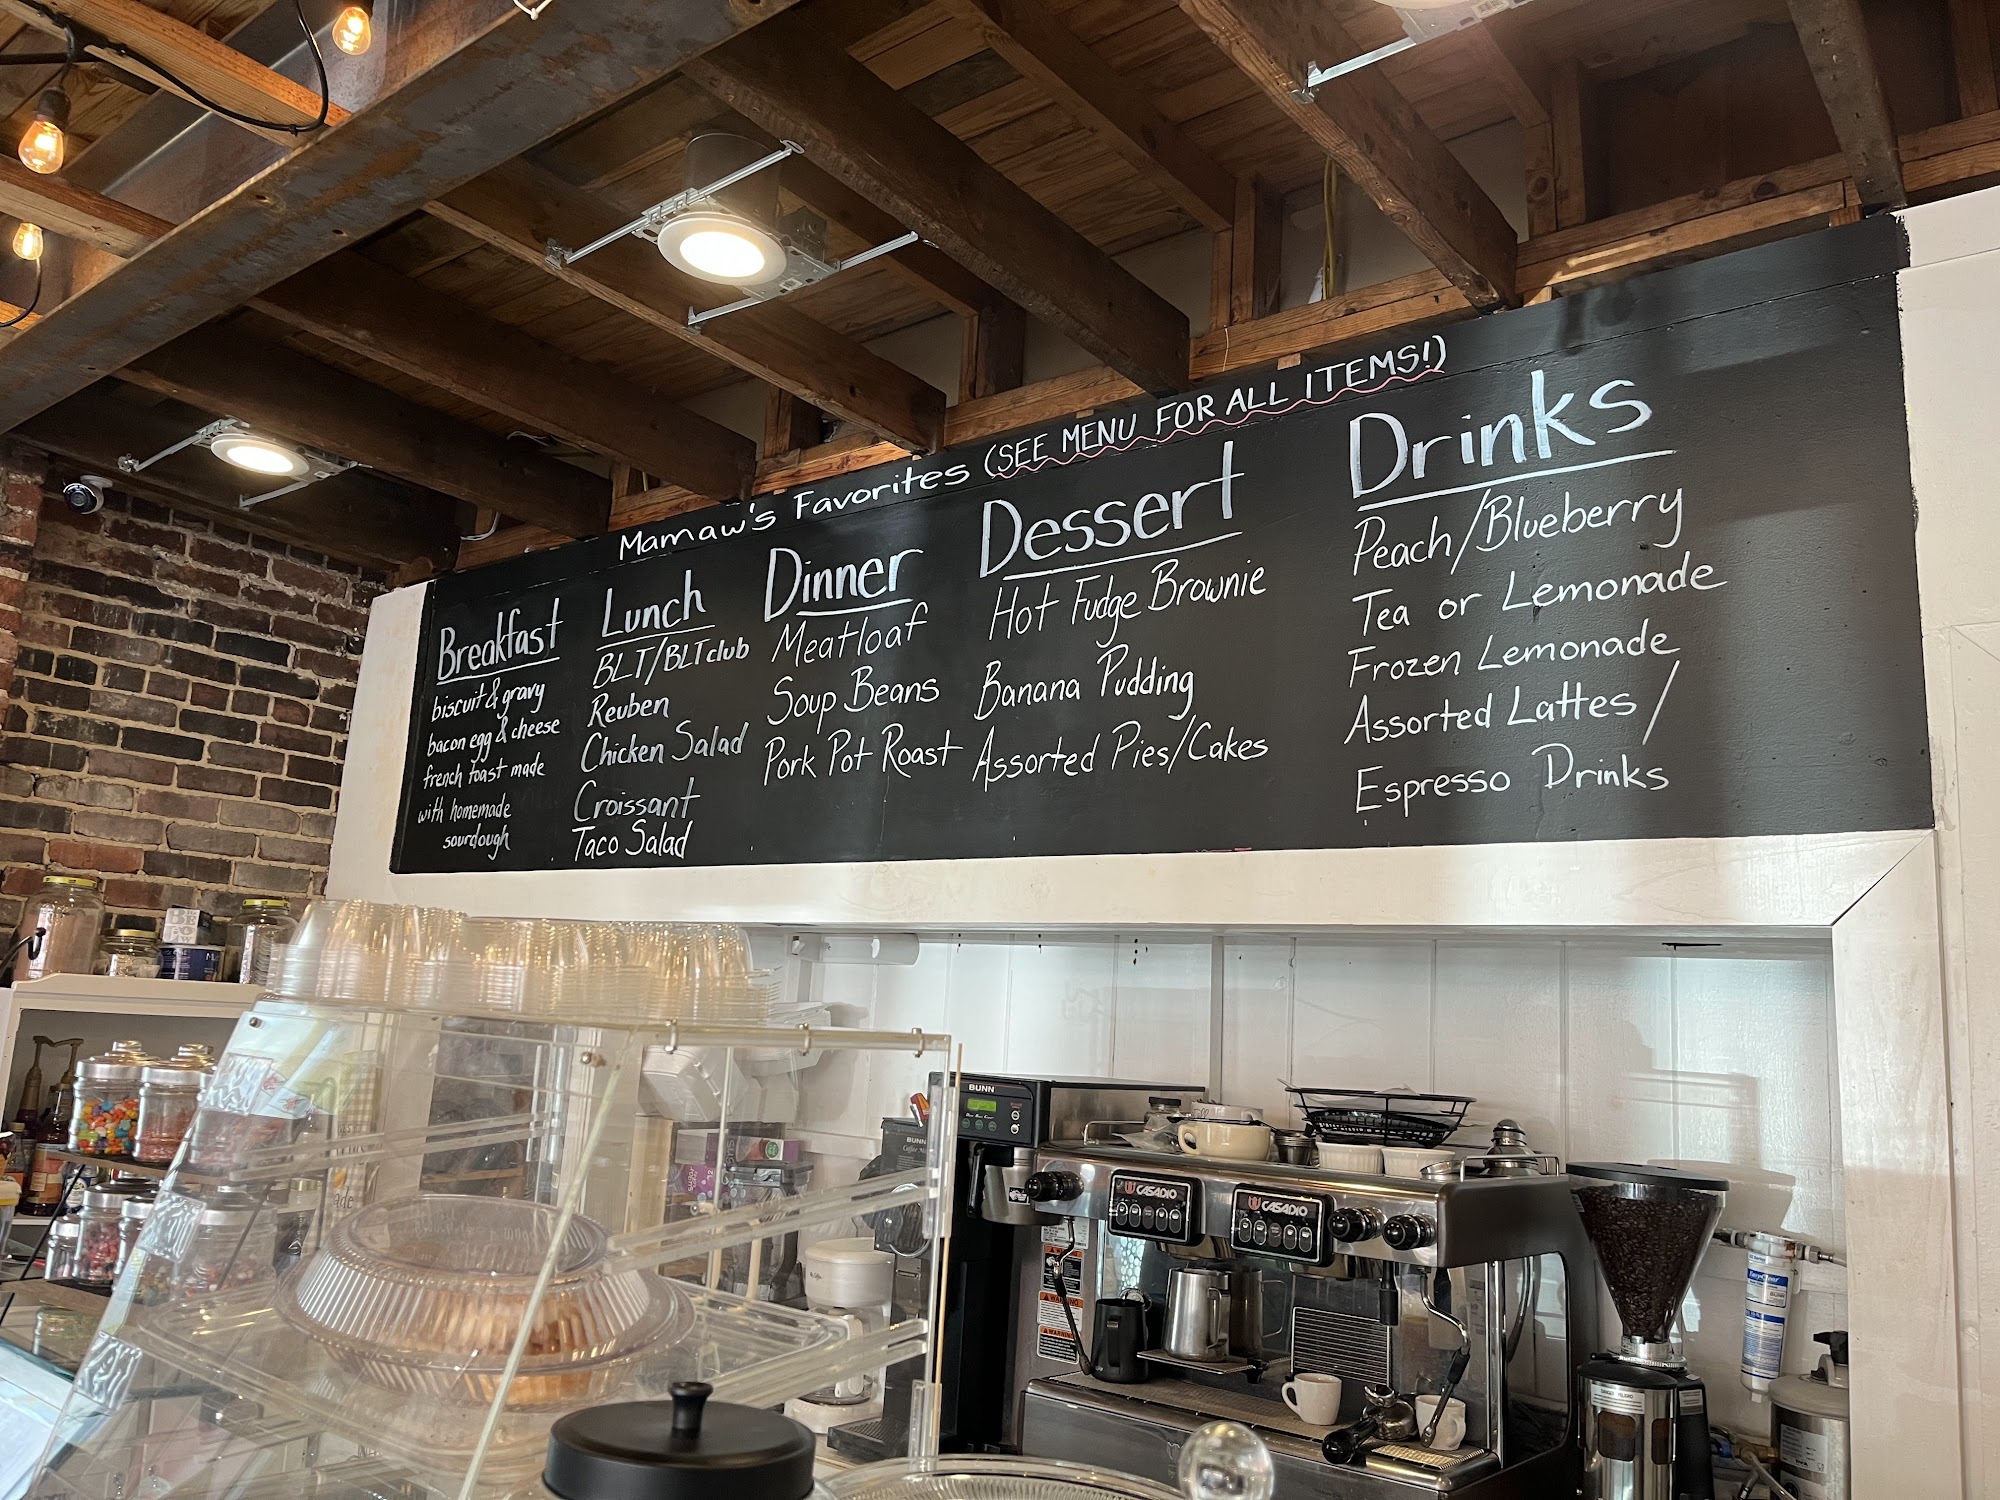 Mamaw's Favorites (SEE MENU FOR ALL ITEMS!)
Breakfast
biscuit & gravy
bacon egg & cheese
french toast made
with homemade
sourdough
Lunch
BLT/BLT club
Reuben
Chicken Salad
Croissant
Taco Salad
Dinner
Meatloaf
Soup Beans
Pork Pot Roast
Dessert
Hot Fudge Brownie
Banana Pudding
Assorted Pies/Cakes
Drinks
Peach/Blueberry
Tea or Lemonade
Frozen Lemonade
Assorted Lattes /
Espresso Drinks
BUNN
BUNN
CASADIO
CASADIO
WARNING
WARNING